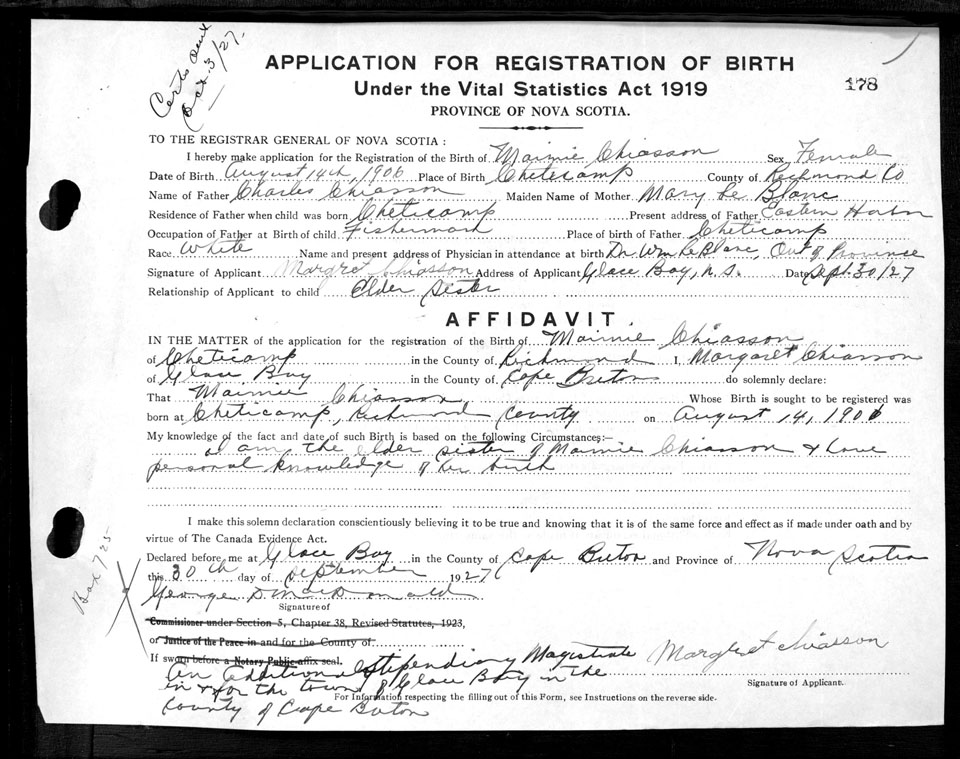 Certs sent
Oct 3/27.
APPLICATION FOR REGISTRATION OF BIRTH
Under the Vital Statistics Act 1919
178
PROVINCE OF NOVA SCOTIA.
TO THE REGISTRAR GENERAL OF NOVA SCOTIA:
I hereby make application for the Registration of the Birth of Maimie Chiasson Sex Female
Date of Birth August 14th, 1906 Place of Birth Cheticamp County of Richmond Co
Name of Father Charles Chiasson Maiden Name of Mother Mary Le Blanc
Residence of Father when child was born Cheticamp Present address of Father Eastern Harbor
Occupation of Father at Birth of child Fisherman Place of birth of Father Cheticamp
Race White Name and present address of Physician in attendance at birth Dr Wm LeBlanc, Out of Province
Signature of Applicant Margret Chiasson Address of Applicant Glace Bay, N.S. Date Sept. 30/27
Relationship of Applicant to child Elder Sister
AFFIDAVIT
IN THE MATTER of the application for the registration of the Birth of Maimie Chiasson
of Cheticamp in the County of Richmond I, Margaret Chiasson
of Glace Bay in the County of Cape Breton do solemnly declare:
That Maimie Chiasson Whose Birth is sought to be registered was
born at Cheticamp, Richmond County on August 14, 1906
My knowledge of the fact and date of such Birth is based on the following Circumstances:—
I am the elder sister of Maimie Chiasson & have
personal knowledge of her birth
I make this solemn declaration conscientiously believing it to be true and knowing that it is of the same force and effect as if made under oath and by
virtue of The Canada Evidence Act.
Declared before me at Glace Bay in the County of Cape Breton and Province of Nova Scotia
this 30th day of September 1927
George D MacDonald
Signature of
Commissioner under Section 5, Chapter 38, Revised Statutes, 1923,
or Justice of the Peace in and for the County of
If sworn before a Notary Public affix seal.
An additional stipendiary Magistrate
in & for the town of Glace Bay in the
County of Cape Breton
Margret Chiasson
Signature of Applicant.
For Information respecting the filling out of this Form, see Instructions on the reverse side.
Box 725